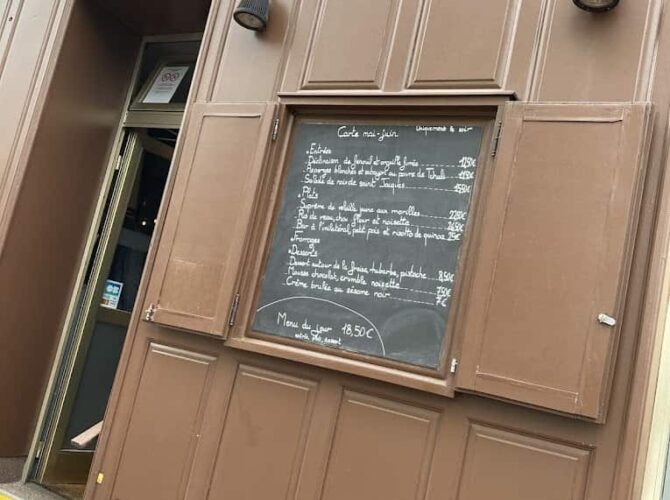 Carte mai-juin Uniquement le soir
• Entrées
Déclinaison de fenouil et anguille fumée 12,50€
Asperges blanches et sabayon au poivre de Tchuli 11,50€
Salade de noix de saint Jacques 15,50€
• Plats
Suprême de volaille jaune aux morilles 22,50€
Ris de veau, chou fleur et noisette 26,50€
Bar à l'unilatéral, petit pois et risotto de quinoa 25€
• Fromages
• Desserts
Dessert autour de la fraise, rhubarbe, pistache 8,50€
Mousse chocolat, crumble noisette 7,50€
Crème brulée au sésame noir 7€
Menu du jour 18,50€
entrée, plat, dessert